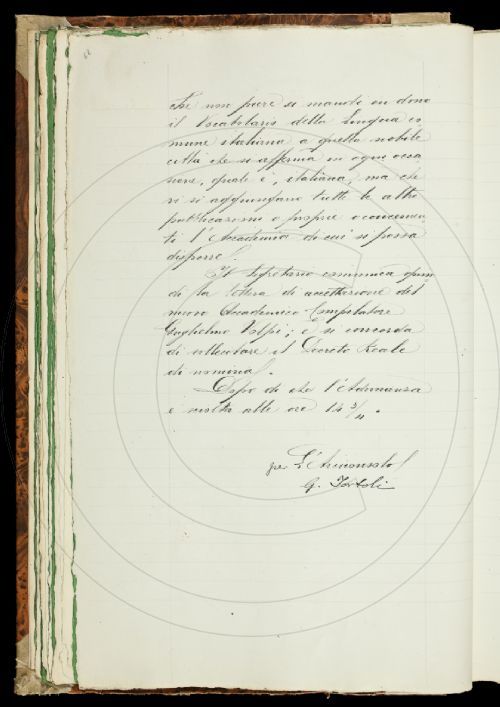 che non pure si mandi in dono
il Vocabolario della Lingua co
mune italiana a quella nobile
città che si afferma in ogni occa
sione, quale è, italiana, ma che
vi si aggiungano tutte le altre
pubblicazioni o proprie o concernen
ti l'Accademia di cui si possa
disporre.
Il Segretario comunica quin
di la lettera di accettazione del
nuovo Accademico Compilatore
Guglielmo Volpi; e si concorda
di sollecitare il Decreto Reale
di nomina.
Dopo di che l'Adunanza
è sciolta alle ore 14 3/4.
per L'Arciconsolo
G. Tortoli